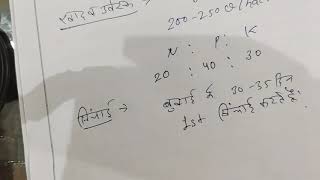 खाद व उर्वरक →
200-250 q/hac
N : P : K
20 : 40 : 30
सिंचाई → बुवाई के 30-35 दिन
1st सिंचाई करते हैं।